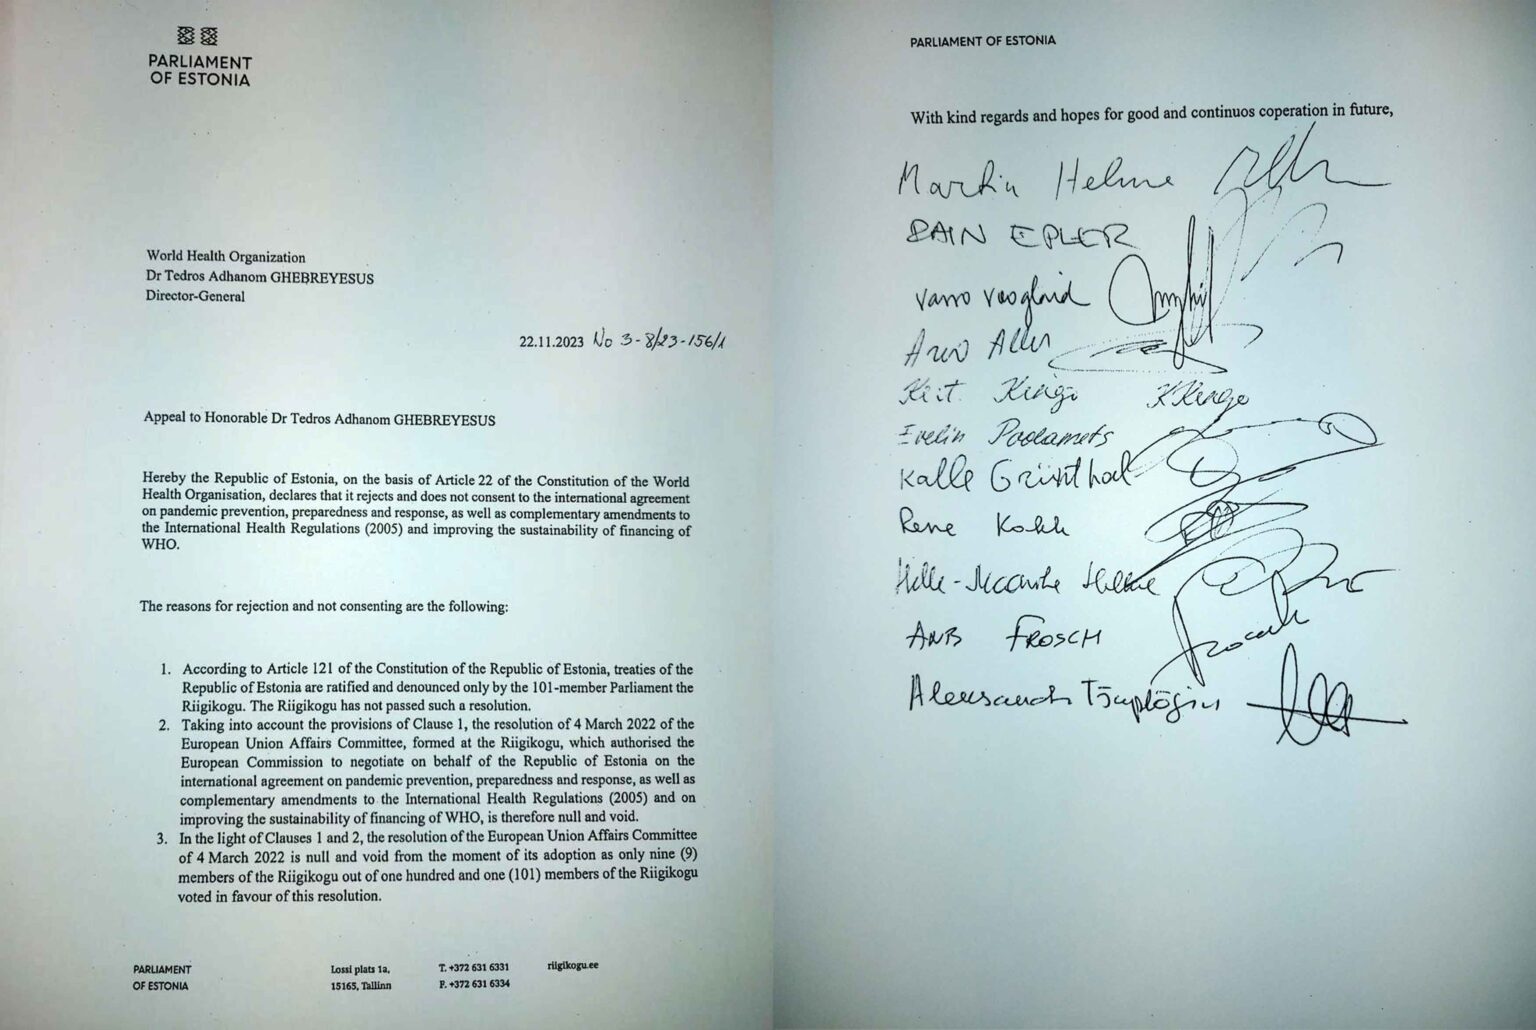 PARLIAMENT
OF ESTONIA
World Health Organization
Dr Tedros Adhanom GHEBREYESUS
Director-General
22.11.2023 No 3-8/23-156/1
Appeal to Honorable Dr Tedros Adhanom GHEBREYESUS
Hereby the Republic of Estonia, on the basis of Article 22 of the Constitution of the World
Health Organisation, declares that it rejects and does not consent to the international agreement
on pandemic prevention, preparedness and response, as well as complementary amendments to
the International Health Regulations (2005) and improving the sustainability of financing of
WHO.
The reasons for rejection and not consenting are the following:
1. According to Article 121 of the Constitution of the Republic of Estonia, treaties of the
Republic of Estonia are ratified and denounced only by the 101-member Parliament the
Riigikogu. The Riigikogu has not passed such a resolution.
2. Taking into account the provisions of Clause 1, the resolution of 4 March 2022 of the
European Union Affairs Committee, formed at the Riigikogu, which authorised the
European Commission to negotiate on behalf of the Republic of Estonia on the
international agreement on pandemic prevention, preparedness and response, as well as
complementary amendments to the International Health Regulations (2005) and on
improving the sustainability of financing of WHO, is therefore null and void.
3. In the light of Clauses 1 and 2, the resolution of the European Union Affairs Committee
of 4 March 2022 is null and void from the moment of its adoption as only nine (9)
members of the Riigikogu out of one hundred and one (101) members of the Riigikogu
voted in favour of this resolution.
PARLIAMENT
OF ESTONIA
Lossi plats 1a,
15165, Tallinn
T. +372 631 6331
F. +372 631 6334
riigikogu.ee
PARLIAMENT OF ESTONIA
With kind regards and hopes for good and continuos coperation in future,
Martin Helme
RAIN EPLER
Varro Vooglaid
Arvo Aller
Kert Kingo KKingo
Evelin Poolamets
Kalle Grünthal
Rene Kokk
Helle-Moonika Helme
ANTI FROSCH
Aleksandr Tšaplõgin